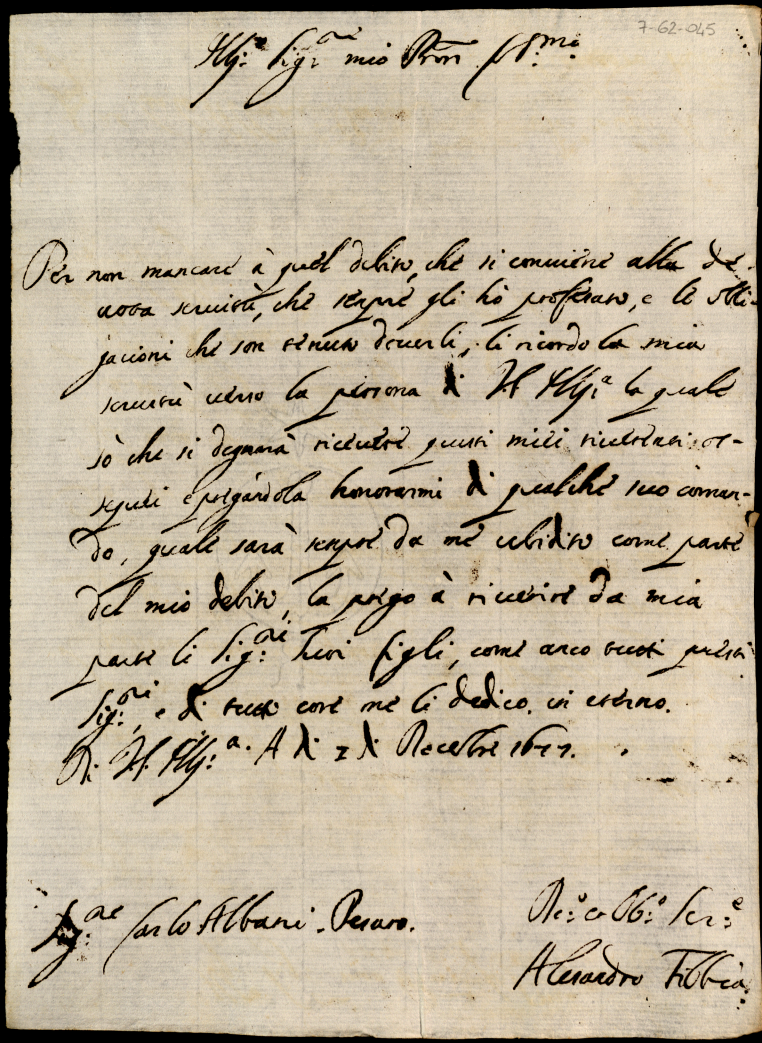 7-62-045
Ill.re Sig.re mio Pron
Per non mancare à quel debito, che si conviene alla de-
vota servitù, che sempre gli hò professato, e le obli-
gacioni che son tenuto deverli, li ricordo la mia
servitù verso la persona di V.S. Ill.a la quale
sò che si degnarà ricevere questi miei riverenti os-
sequi e pregàrdola honorarmi di qualche suo coman-
do, quale sarà sempre da me ubidito come parte
del mio debito, la prego à riverire da mia
parte li Sig.ri suoi figli, come anco tutti questi
Sig.ri, e di tutto core me li dedico in eterno.
Di V.S. Ill.a. A di 2 di Decembre
Sig.re Carlo Albani. Pesaro.
De.o et Ob.o Ser.e
Alesandro Tibbia